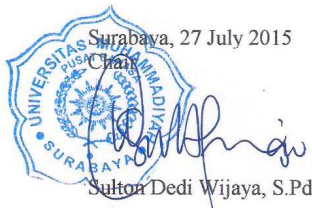 Surabaya, 27 July 2015
Chair
UNIVERSITAS MUHAMMADIYAH
PUSAT BAHASA
SURABAYA
Sulton Dedi Wijaya, S.Pd